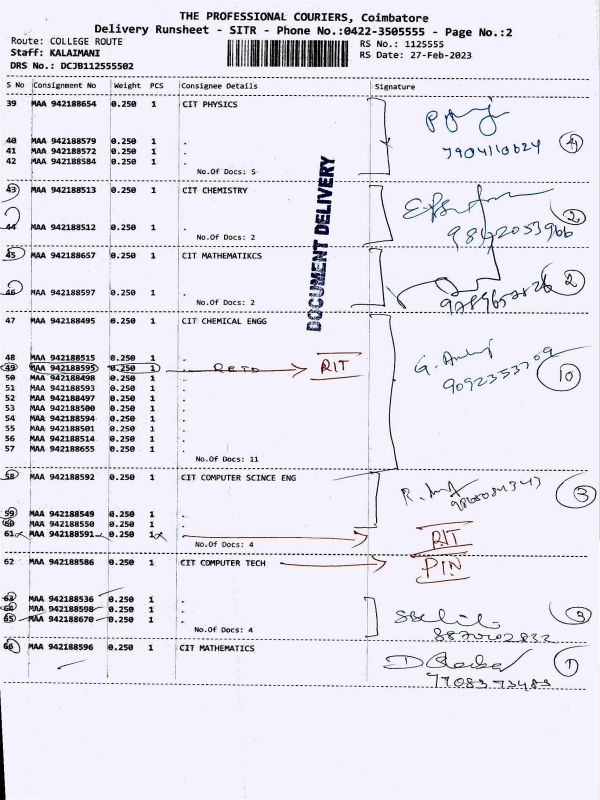 THE PROFESSIONAL COURIERS, Coimbatore
Delivery Runsheet - SITR - Phone No.:0422-3505555 - Page No.:2
Route: COLLEGE ROUTE
Staff: KALAIMANI
DRS No.: DCJB112555502
RS No.: 1125555
RS Date: 27-Feb-2023
S No Consignment No Weight PCS Consignee Details Signature
39 MAA 942188654 0.250 1 CIT PHYSICS
40 MAA 942188579 0.250 1 .
41 MAA 942188572 0.250 1 .
42 MAA 942188584 0.250 1 .
No.Of Docs: 5
7904110624
4
43 MAA 942188513 0.250 1 CIT CHEMISTRY
44 MAA 942188512 0.250 1 .
No.Of Docs: 2
9842053966
2
DOCUMENT DELIVERY
45 MAA 942188657 0.250 1 CIT MATHEMATIKCS
46 MAA 942188597 0.250 1 .
No.Of Docs: 2
2
47 MAA 942188495 0.250 1 CIT CHEMICAL ENGG
48 MAA 942188515 0.250 1 .
49 MAA 942188595 0.250 1 . RIT
50 MAA 942188498 0.250 1 .
51 MAA 942188593 0.250 1 .
52 MAA 942188497 0.250 1 .
53 MAA 942188500 0.250 1 .
54 MAA 942188594 0.250 1 .
55 MAA 942188501 0.250 1 .
56 MAA 942188514 0.250 1 .
57 MAA 942188655 0.250 1 .
No.Of Docs: 11
9092353709
10
58 MAA 942188592 0.250 1 CIT COMPUTER SCINCE ENG
59 MAA 942188549 0.250 1 .
60 MAA 942188550 0.250 1 .
61 MAA 942188591 0.250 1 . RIT
No.Of Docs: 4
3
62 MAA 942188586 0.250 1 CIT COMPUTER TECH PIN
63 MAA 942188536 0.250 1 .
64 MAA 942188598 0.250 1 .
65 MAA 942188670 0.250 1 .
No.Of Docs: 4
8870202832
3
66 MAA 942188596 0.250 1 CIT MATHEMATICS
7708373483
1